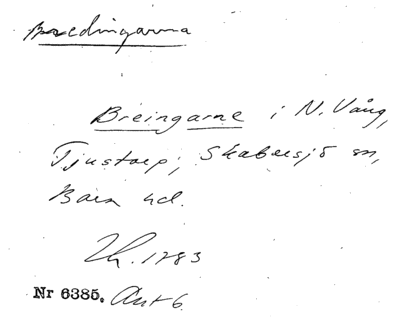 Bredingarna
Breingarne i N. Vång,
Tjustorp, Skabersjö sn,
Bara hd.
Lh. 1783
Nr 6385. Ant 6.